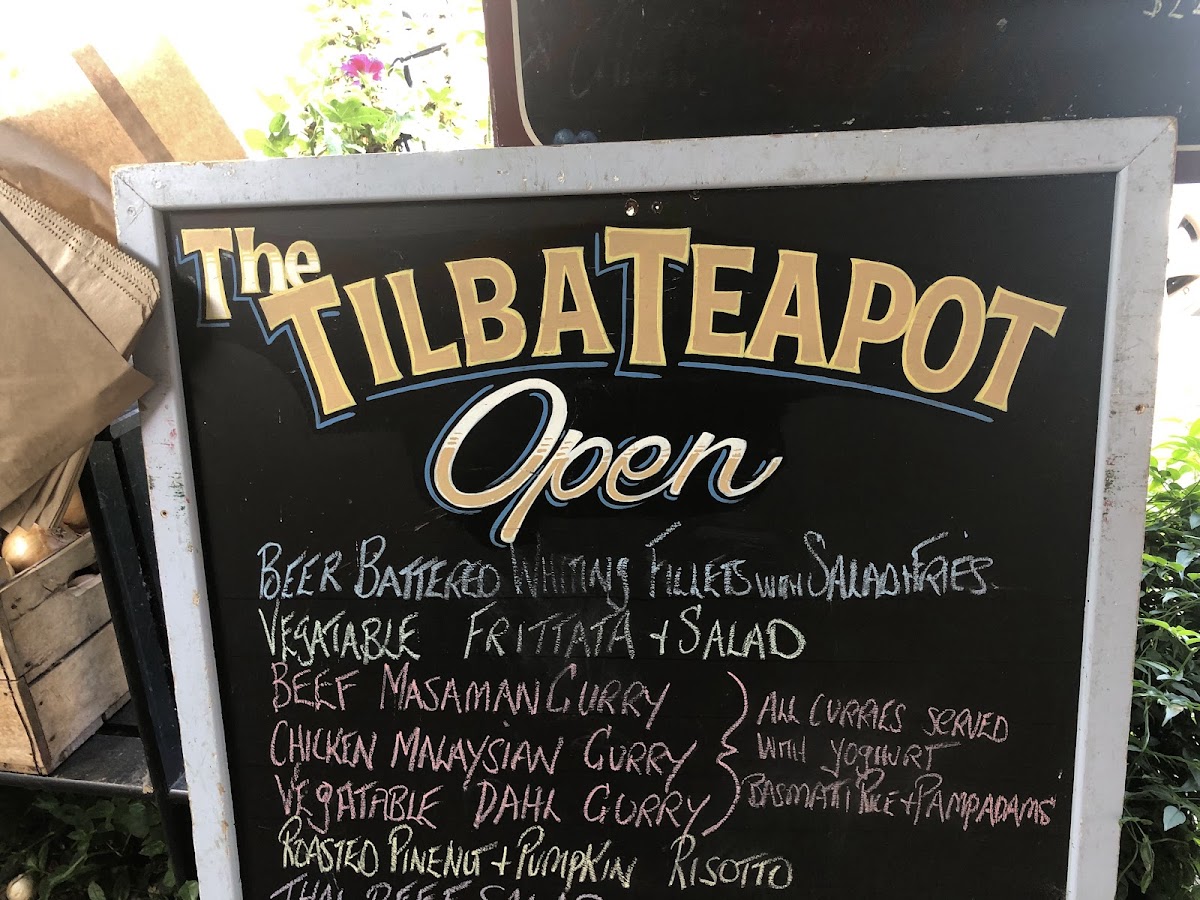 The TILBA TEAPOT
Open
BEER BATTERED WHITING FILLETS WITH SALAD + FRIES
VEGATABLE FRITTATA + SALAD
BEEF MASAMAN CURRY
CHICKEN MALAYSIAN CURRY
VEGATABLE DAHL CURRY
ALL CURRIES SERVED
WITH YOGHURT
BASMATI RICE + PAMPADAMS
ROASTED PINENUT + PUMPKIN RISOTTO
THAI BEEF SALAD